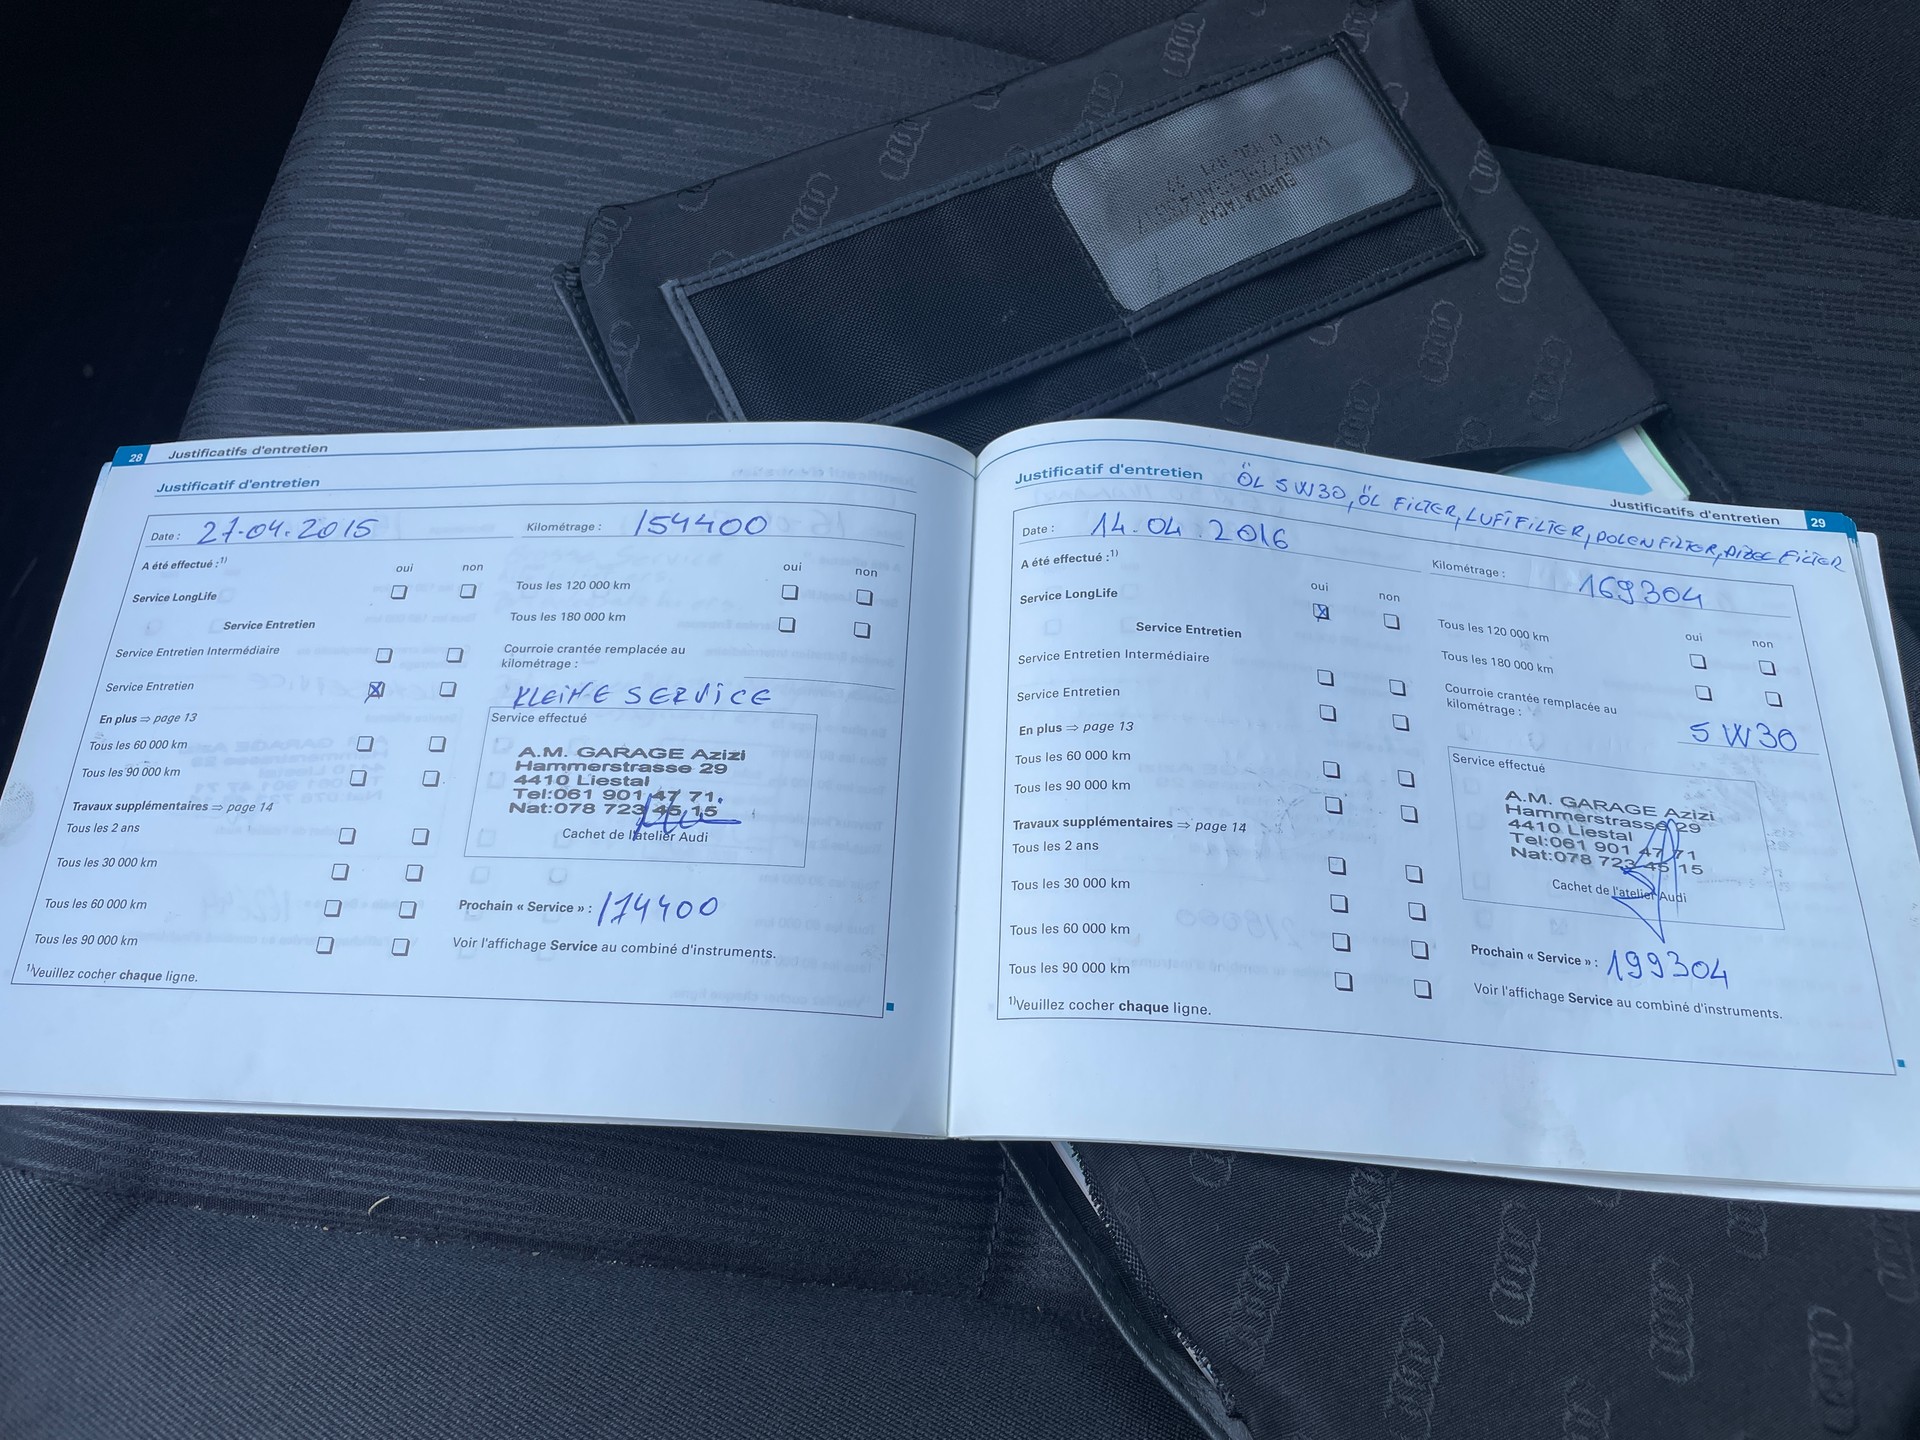 28 Justificatifs d'entretien
Justificatif d'entretien
Date : 27.04.2015 Kilométrage : 154400
A été effectué :1)
oui non oui non
Service LongLife Tous les 120 000 km
Service Entretien Tous les 180 000 km
Service Entretien Intermédiaire
Courroie crantée remplacée au
kilométrage :
Service Entretien KLEINE SERVICE
En plus ⇒ page 13
Service effectué
Tous les 60 000 km
Tous les 90 000 km
A.M. GARAGE Azizi
Hammerstrasse 29
4410 Liestal
Tel:061 901 47 71.
Nat:078 723 45 15
Cachet de l'atelier Audi
Travaux supplémentaires ⇒ page 14
Tous les 2 ans
Tous les 30 000 km
Tous les 60 000 km
Tous les 90 000 km
Prochain « Service » : 174400
Voir l'affichage Service au combiné d'instruments.
1)Veuillez cocher chaque ligne.
Justificatifs d'entretien 29
Justificatif d'entretien
ÖL 5W30, ÖL FILTER, LUFTFILTER, POLENFILTER, DIZEL FILTER
Date : 14.04.2016
Kilométrage : 169304
A été effectué :1)
oui non oui non
Service LongLife Tous les 120 000 km
Service Entretien Tous les 180 000 km
Service Entretien Intermédiaire
Courroie crantée remplacée au
kilométrage :
5W30
Service Entretien
En plus ⇒ page 13
Service effectué
Tous les 60 000 km
Tous les 90 000 km
A.M. GARAGE Azizi
Hammerstrasse 29
4410 Liestal
Tel:061 901 47 71
Nat:078 723 45 15
Cachet de l'atelier Audi
Travaux supplémentaires ⇒ page 14
Tous les 2 ans
Tous les 30 000 km
Tous les 60 000 km
Tous les 90 000 km
Prochain « Service » : 199304
Voir l'affichage Service au combiné d'instruments.
1)Veuillez cocher chaque ligne.